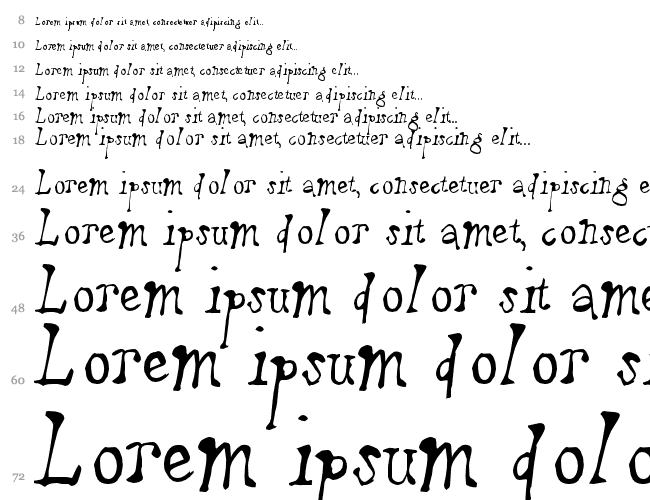 8 Lorem ipsum dolor sit amet, consectetuer adipiscing elit...
10 Lorem ipsum dolor sit amet, consectetuer adipiscing elit...
12 Lorem ipsum dolor sit amet, consectetuer adipiscing elit...
14 Lorem ipsum dolor sit amet, consectetuer adipiscing elit...
16 Lorem ipsum dolor sit amet, consectetuer adipiscing elit...
18 Lorem ipsum dolor sit amet, consectetuer adipiscing elit...
24 Lorem ipsum dolor sit amet, consectetuer adipiscing e
36 Lorem ipsum dolor sit amet, consec
48 Lorem ipsum dolor sit ame
60 Lorem ipsum dolor si
72 Lorem ipsum dolo